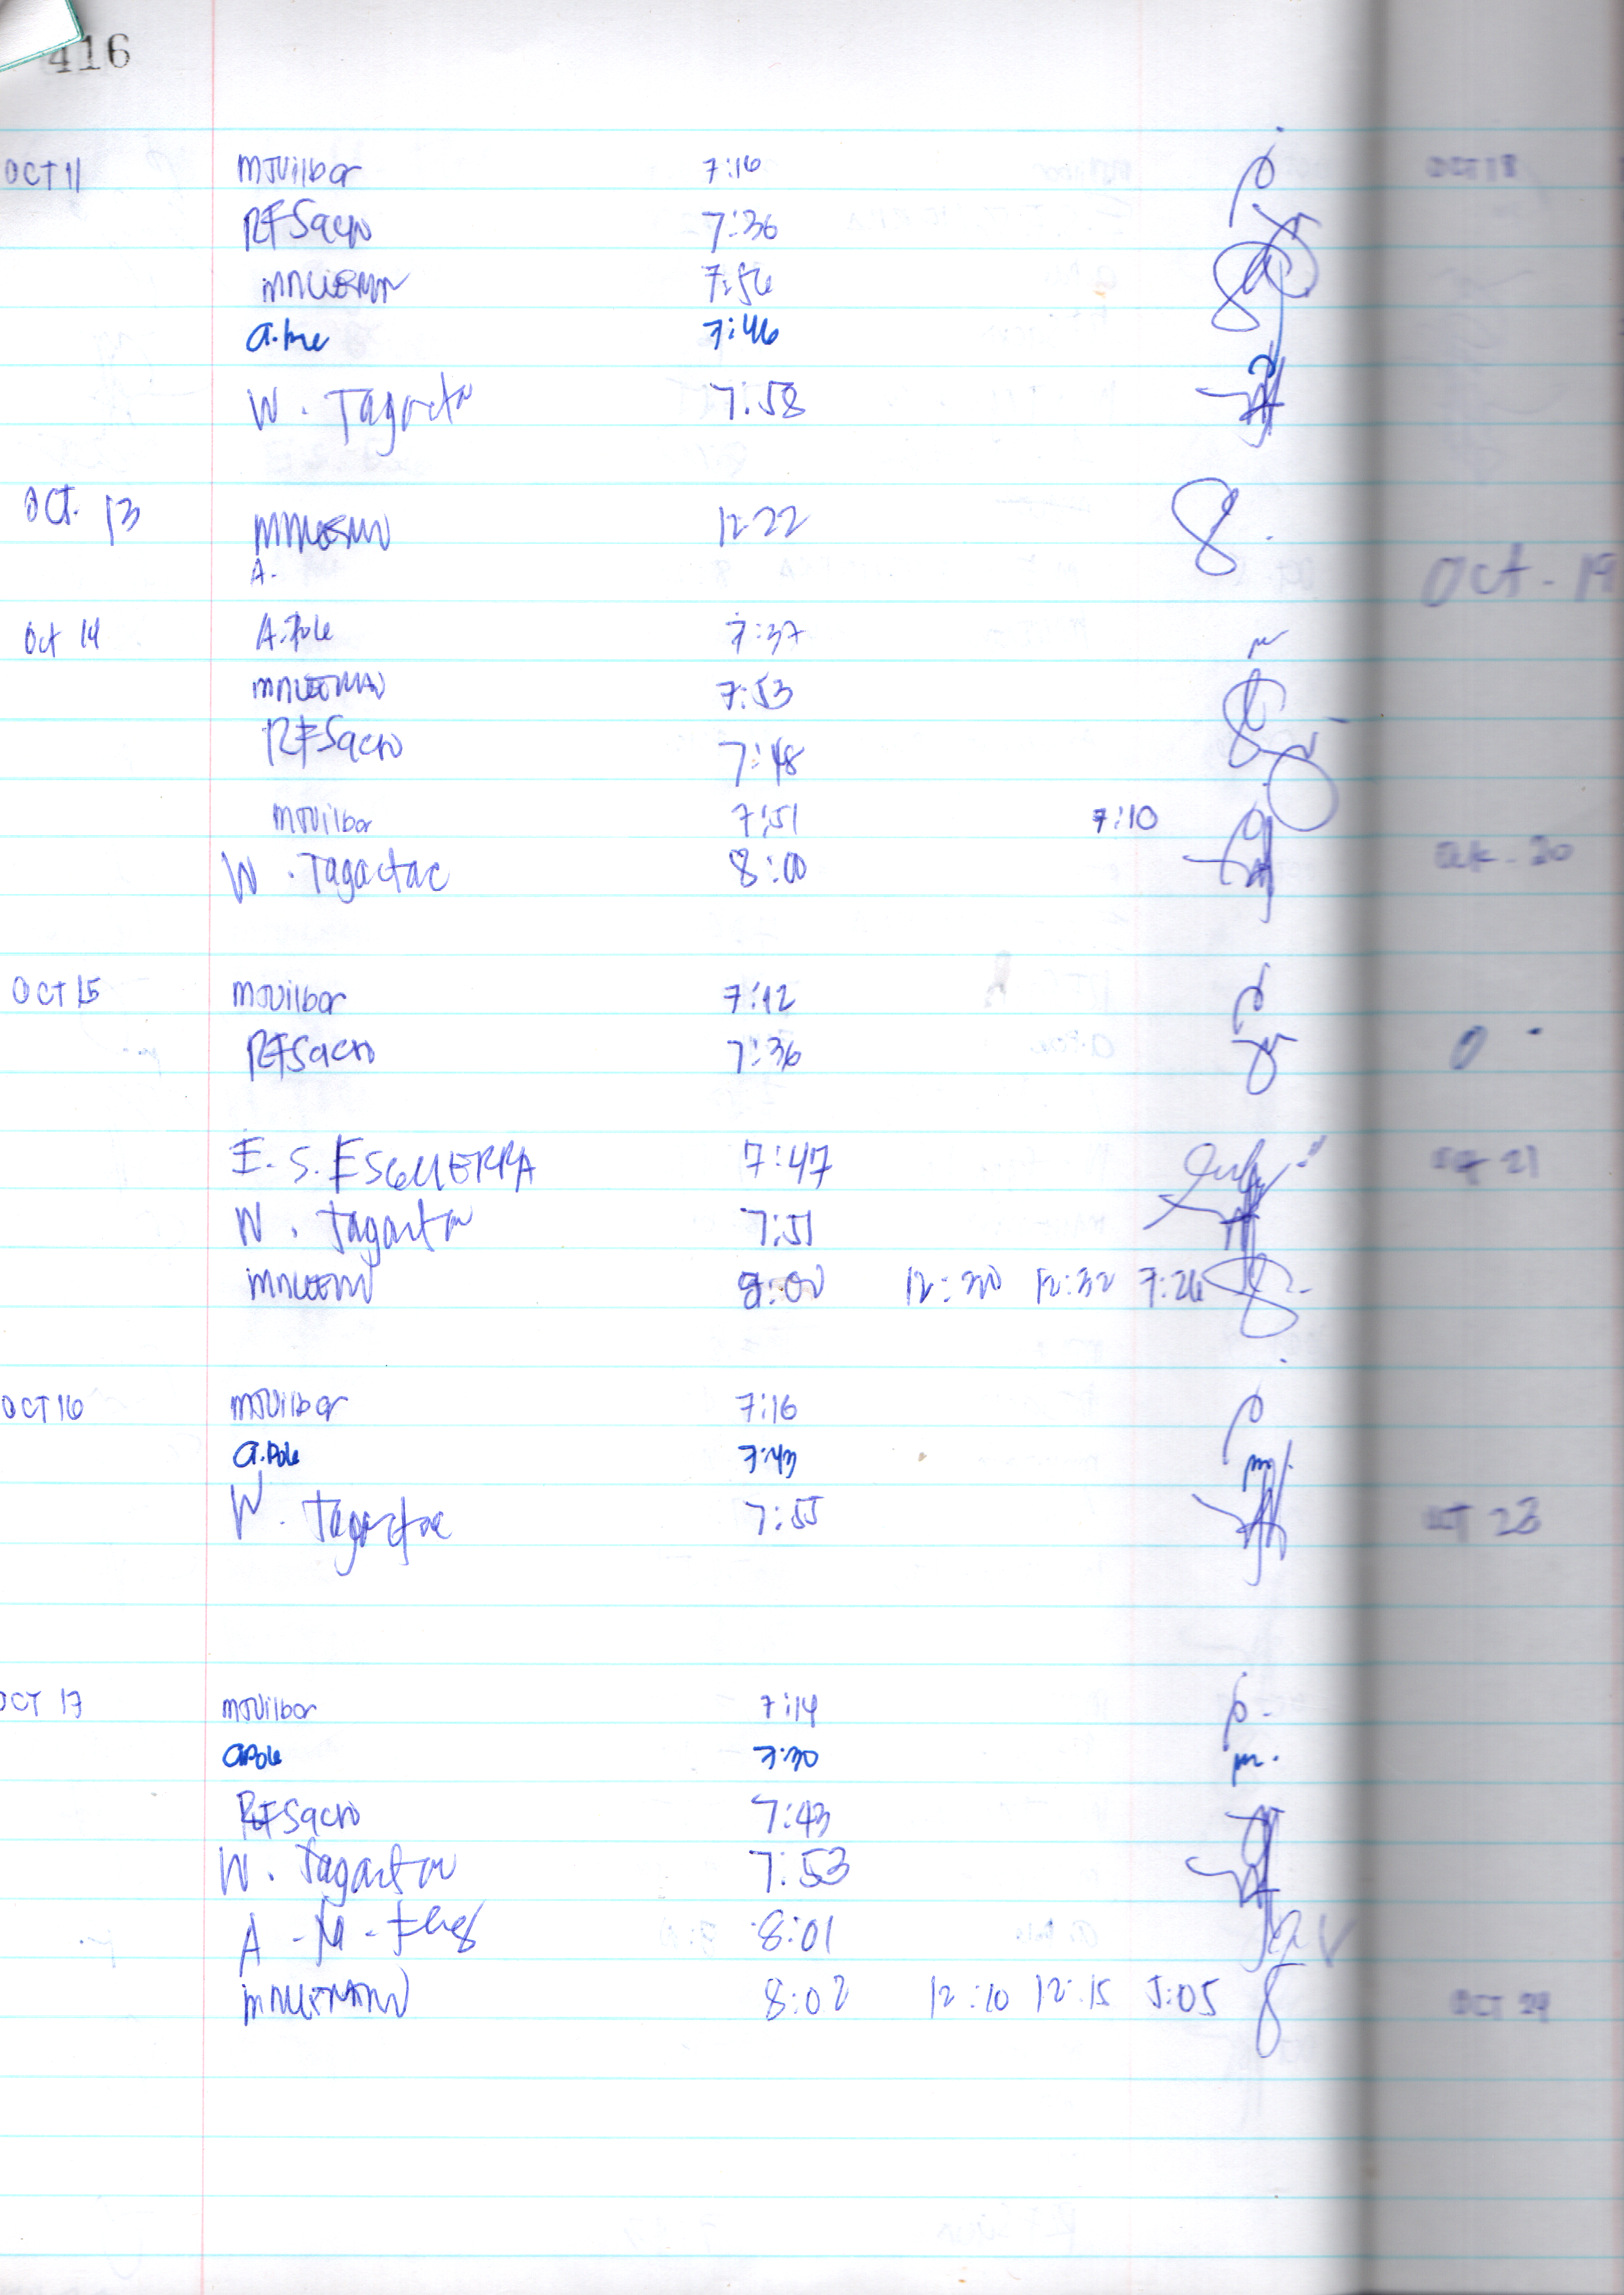 416
OCT 11 MJVilbar 7:16
RFSacro 7:36
7:56
7:46
W. Tagactac 7:58
OCT. 13 12:22
A.
Oct 14 A.Pole 7:37
7:53
RFSacro 7:48
MJVilbar 7:51 7:10
W. Tagactac 8:00
OCT 15 MJVilbar 7:12
RFSacro 7:36
E. S. ESGUERRA 7:47
W. Tagactac 7:51
8:00 12:30 12:32 7:26
OCT 16 MJVilbar 7:16
a.Pole 7:43
W. Tagactac 7:55
OCT 17 MJVilbar 7:14
aPole 7:30
RFSacro 7:43
W. Tagactac 7:53
A. M. 8:01
8:02 12:10 12:15 5:05
OCT 18
Oct. 19
Oct. 20
21
OCT 23
OCT 24